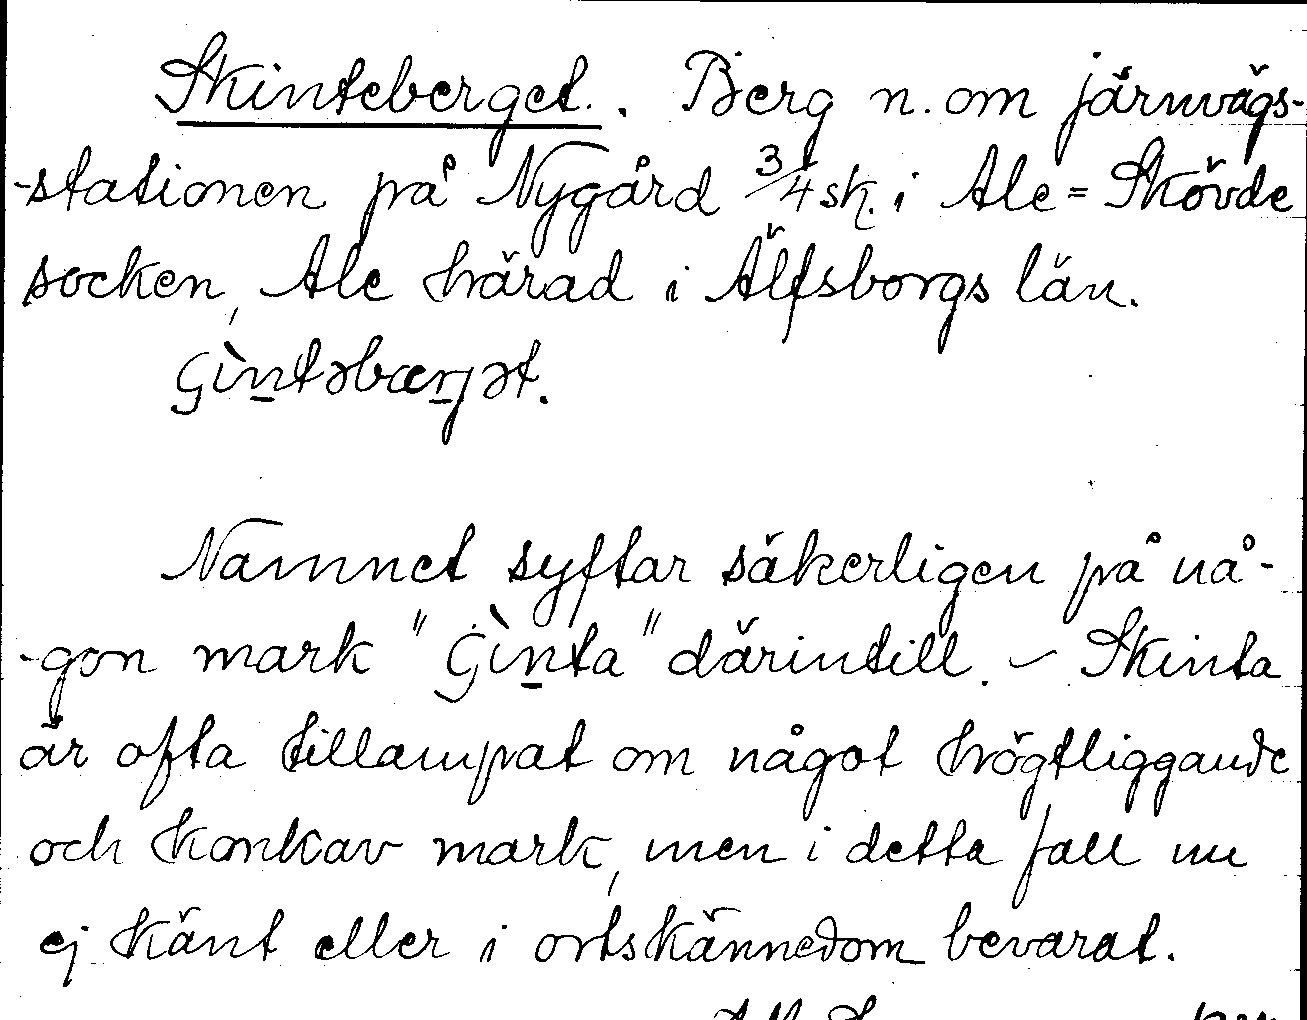 Skinteberget. Berg n. om järnvägs-
-stationen på Nygård 3/4 sk. i Ale=Skövde
socken, Ale härad i Älfsborgs län.
Gìn̲təbær̲jət.
Namnet syftar säkerligen på nå-
-gon mark "Gìn̲ta" därintill. – Skinta
är ofta tillämpat om något högtliggande
och konkav mark, men i detta fall nu
ej känt eller i ortskännedom bevarat.